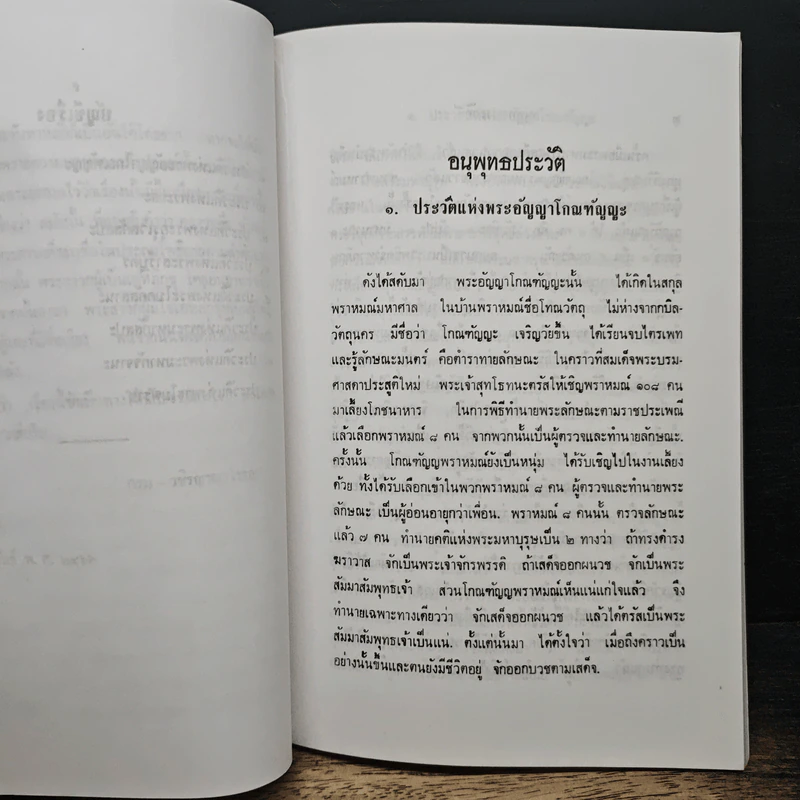 อนุพุทธประวัติ
๑. ประวัติแห่งพระอัญญาโกณฑัญญะ
ดังได้สดับมา พระอัญญาโกณฑัญญะนั้น ได้เกิดในสกุล
พราหมณ์มหาศาล ในบ้านพราหมณ์ชื่อโทณวัตถุ ไม่ห่างจากกบิล-
วัตถุนคร มีชื่อว่า โกณฑัญญะ เจริญวัยขึ้น ได้เรียนจบไตรเพท
และรู้ลักษณะมนตร์ คือตำราทายลักษณะ ในคราวที่สมเด็จพระบรม-
ศาสดาประสูติใหม่ พระเจ้าสุทโธทนะตรัสให้เชิญพราหมณ์ ๑๐๘ คน
มาเลี้ยงโภชนาหาร ในการพิธีทำนายพระลักษณะตามราชประเพณี
แล้วเลือกพราหมณ์ ๘ คน จากพวกนั้นเป็นผู้ตรวจและทำนายลักษณะ.
ครั้งนั้น โกณฑัญญพราหมณ์ยังเป็นหนุ่ม ได้รับเชิญไปในงานเลี้ยง
ด้วย ทั้งได้รับเลือกเข้าในพวกพราหมณ์ ๘ คน ผู้ตรวจและทำนายพระ
ลักษณะ เป็นผู้อ่อนอายุกว่าเพื่อน. พราหมณ์ ๘ คนนั้น ตรวจลักษณะ
แล้ว ๗ คน ทำนายคติแห่งพระมหาบุรุษเป็น ๒ ทางว่า ถ้าทรงดำรง
ฆราวาส จักเป็นพระเจ้าจักรพรรดิ ถ้าเสด็จออกผนวช จักเป็นพระ
สัมมาสัมพุทธเจ้า ส่วนโกณฑัญญพราหมณ์เห็นแน่แก่ใจแล้ว จึง
ทำนายเฉพาะทางเดียวว่า จักเสด็จออกผนวช แล้วได้ตรัสเป็นพระ
สัมมาสัมพุทธเจ้าเป็นแน่. ตั้งแต่นั้นมา ได้ตั้งใจว่า เมื่อถึงคราวเป็น
อย่างนั้นขึ้นและตนยังมีชีวิตอยู่ จักออกบวชตามเสด็จ.